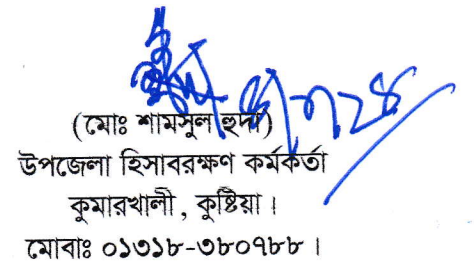 (মোঃ শামসুল হুদা)
উপজেলা হিসাবরক্ষণ কর্মকর্তা
কুমারখালী, কুষ্টিয়া।
মোবাঃ ০১৩১৮-৩৮০৭৮৮।